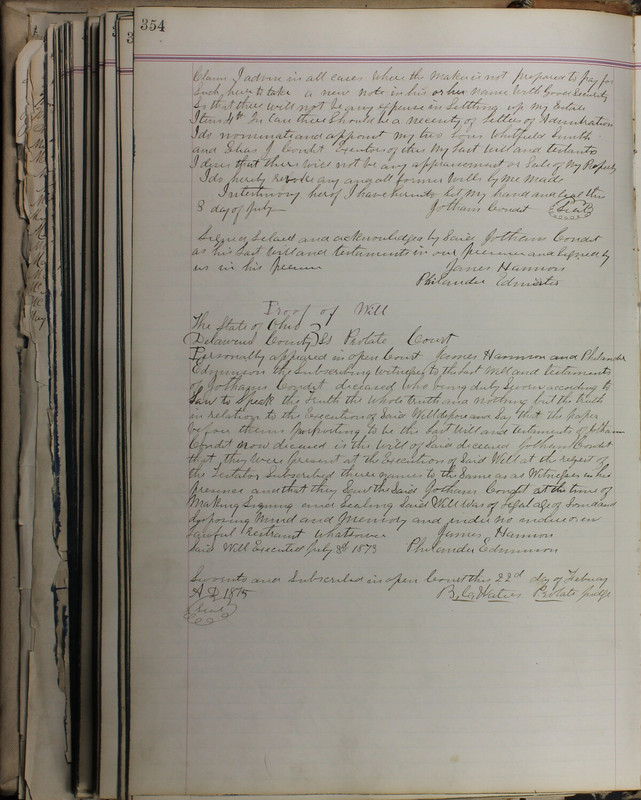 354
Claim I advise in all cases where the maker is not prepared to pay for
such, heirs to take a new note in his or her name with Good Security
So that there will not be any expense in Settling up my Estate
Item 4th In Case there Should be a necesity of letters of
I do nominate and appoint my two Sons Whitfield Smith
and Elias J Condit Exectors of this My last Will and testiments
I desire that there will not be any appraisement or Sale of My Property
I do hereby revoke any and all former Wills by me made
In testimony herof I have hereunto Set My hand and Seal this
8 day of July Jotham Condit (Seal)
Signed Sealed and acknowledged by Said Jotham Condit
as his last Will and testaments in our presence and Signed by
us in his presence James Hannon
Philander
Proof of Will
The State of Ohio
Delaware County SS Probate Court
Personally appeared in open Court James Hannon and Philander
the Subscribing Witnesses to the last Will and testiments
of Jotham Condit deceased who being duly Sworn according to
Law to Speak the truth the Whole truth and nothing but the truth
in relation to the Execution of Said Will depose and Say that the paper
before them purporting to be the last Will and testiments of Jotham
Condit now deceased is the Will of Said deceased Jotham Condit
that they Were present at the Execution of Said Will at the request of
the Testator Subscribed there names to the Same as as Witnesses in his
presence and that they Saw the Said Jotham Condit at the time of
Making Signing and Sealing Said Will Was of legal age of Sound and
disposing Mind and Memory and under no
Restraint Whatsoever James Hannon
Said Will Executed July 8th 1873 Philander
and Subscribed in open Court this 22d day of
A.D. 1875 B. C. Waters Probate Judge
(Seal)